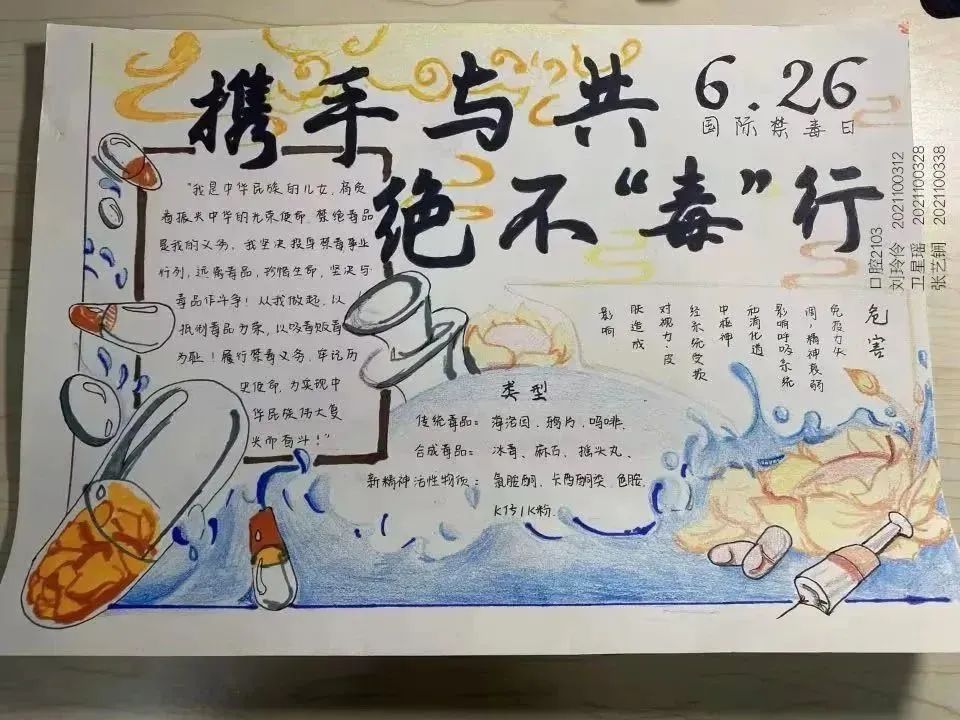 携手与共
6.26
国际禁毒日
绝不“毒”行
口腔2103
刘玲伶 2021100312
卫星瑶 2021100328
张艺锎 2021100338
“我是中华民族的儿女，肩负
着振兴中华的光荣使命，禁绝毒品
是我的义务，我坚决投身禁毒事业
行列，远离毒品，珍惜生命，坚决与
毒品作斗争！从我做起，以
抵制毒品为荣，以吸毒贩毒
为耻！履行禁毒义务，牢记历
史使命，为实现中
华民族伟大复
兴而奋斗！”
危害
免疫力失
调，精神衰弱
影响呼吸系统
和消化道
中枢神
经系统受损
对视力、皮
肤造成
影响
类型
传统毒品：海洛因、鸦片、吗啡、
合成毒品：冰毒、麻古、摇头丸、
新精神活性物质：氯胺酮、卡西酮类、色胺、
K仔\K粉、